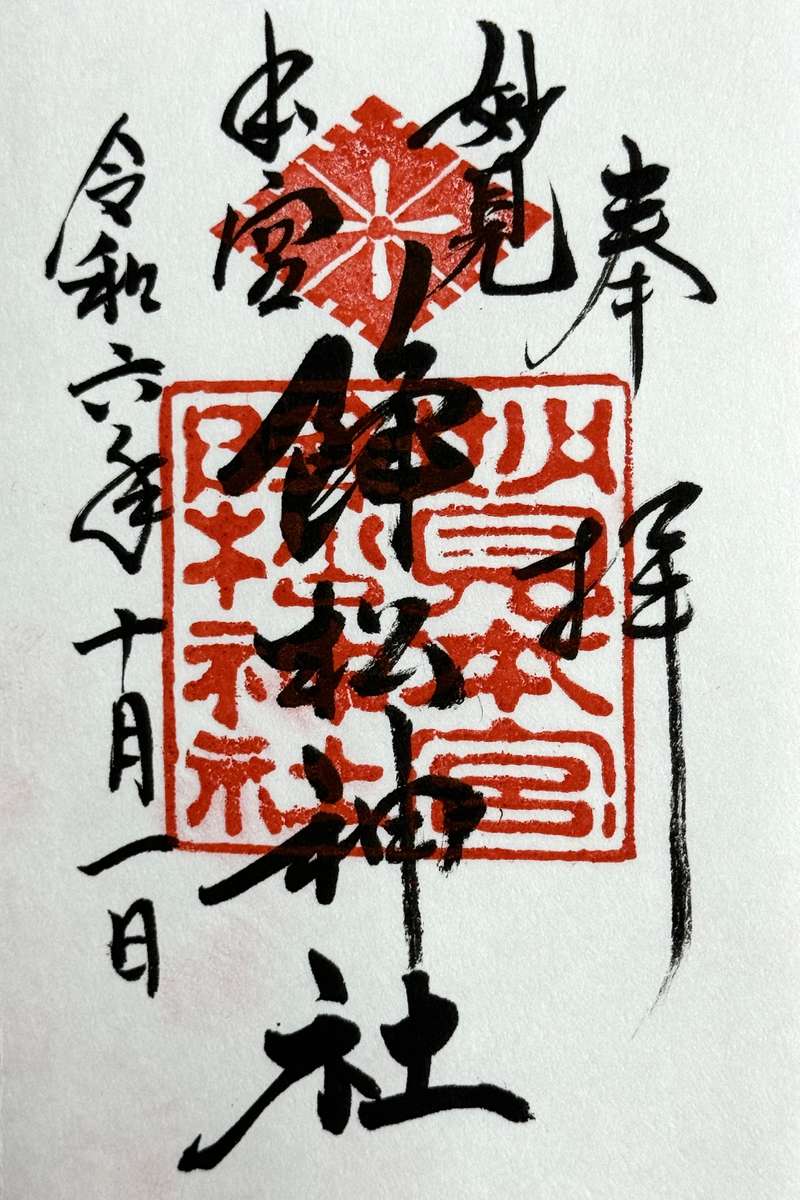 奉拝
妙見
本宮
降松神社
令和六年十月一日
妙見本宮
降松神社